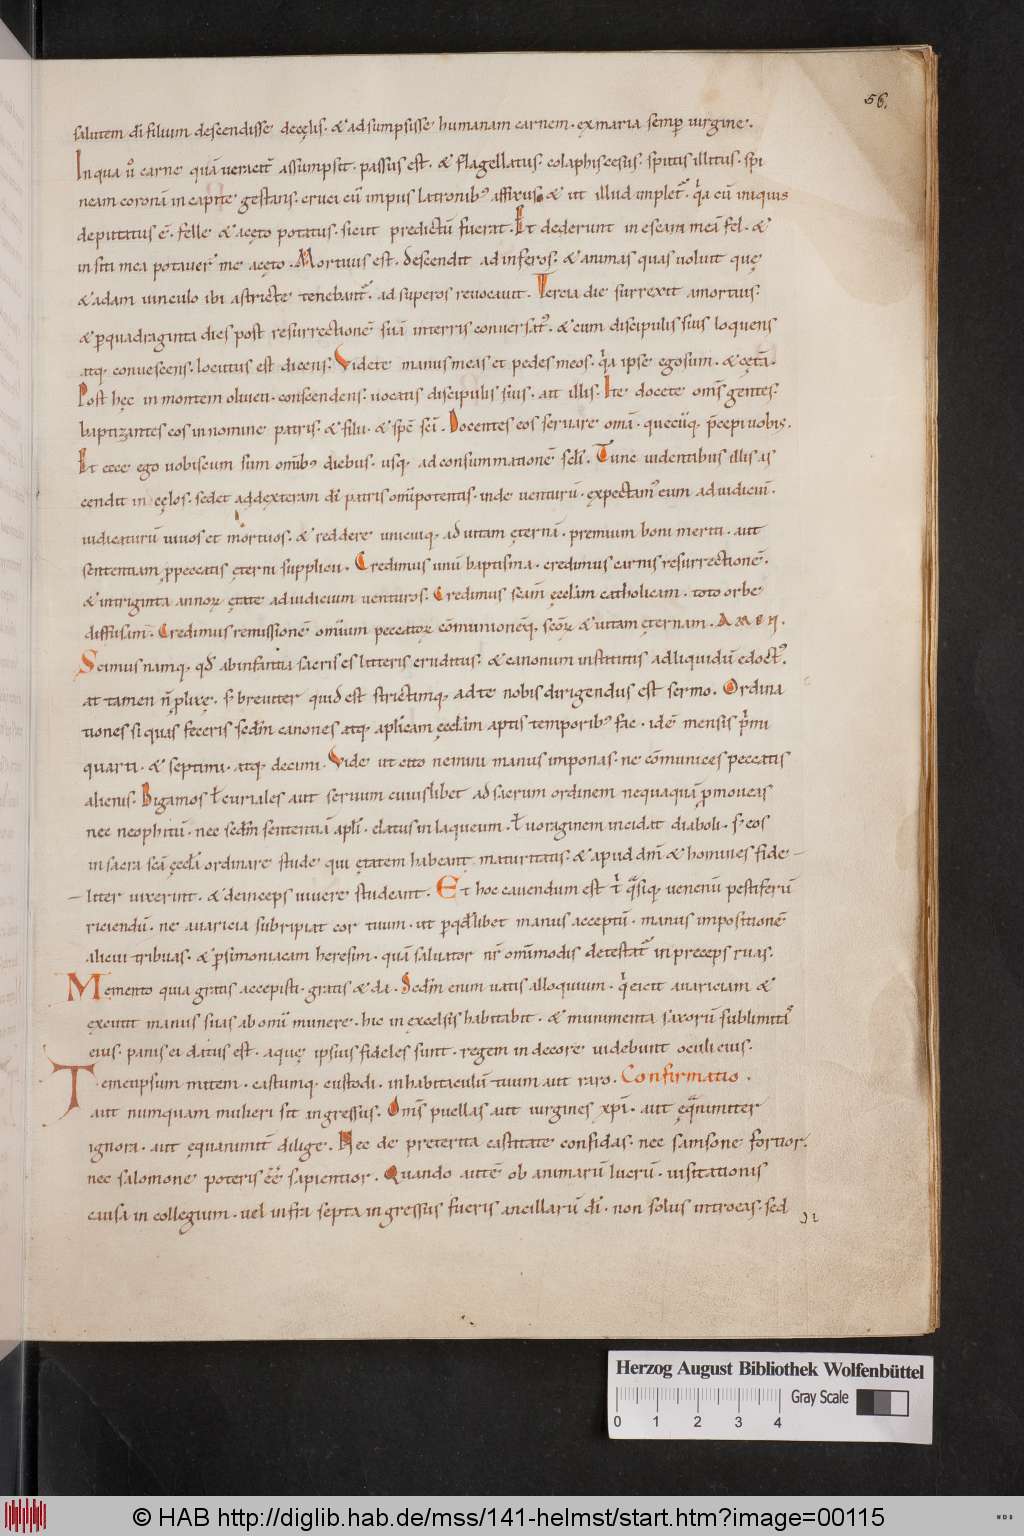 56.
salutem dī filium descendisse decęlis· &adsumpsisse humanam carnem· exmaria semꝑ uirgine.
In qua u͛ carne quā ueracit̄ assumpsit· passus est· & flagellatus· colaphis cesus· sputis illitus· spi
neam coronā in capite gestans· cruci cū impiis latronib; affixus· & ut illud implet̄· qa cū iniquis
deputatus ē· felle & acęto potatus· sicut predictū fuerat· Et dederunt in escam meā fel· &
insiti mea potauer̄ me acęto· Mortuus est· descendit ad inferos· & animas quas uoluit quę
& adam uinculo ibi astricte tenebant̄· ad superos reuocauit· Tercia die surrexit amortuis·
& ꝑquadraginta dies post resurrectionē suā interris conuersat;· & cum discipulis suis loquens
atq; conuescens· locutus est dicens· Videte manus meas et pedes meos· qa ipse ego sum· & cętā·
Post hęc in montem oliueti· conscendens· uocatis discipulis suis· ait illis· Ite docete om̄s gentes·
baptizantes eos in nomine patris· & filii· & sp̄c sc̄i· Docentes eos seruare om̄a· quecūq; p̄cepi uobis·
Et ecce ego uobiscum sum om̄ib; diebus· usq; ad consummationē sc̄li· Tunc uidentibus illis as
cendit in cęlos· sedet ad dexteram dī patris om̄ipotentis· inde uenturū· expectam; eum ad iudiciū·
iudicaturū uiuos et mortuos· & reddere unicuiq; ad uitam ęternā· premium boni meriti· aut
sententiam ꝓpeccatis ęterni supplicii· Credimus unū baptisma· credimus carnis resurrectionē·
& intriginta annoꝝ ętate ad iudicium uenturos· Credimus sc̄am ęcclām catholicam· toto orbe
diffusam· Credimus remissionē omium peccatoꝝ cōmunionēq; sc̄oꝝ & uitam ęternam· AMEN·
Scimus namq; qd abinfantia sacris es litteris eruditus· & canonum institutis ad liquidū edoct;·
at tamen n̄ ꝓlixę· s; breuiter quid est strictimq; ad te nobis dirigendus est sermo· Ordina
tiones si quas feceris sedm̄ canones atq; aplicam ęcclām aptis temporib; fac· idē mensis p̄mi
quarti· & septimi· atq; decimi· Vide ut cito nemini manus imponas· ne cōmunices peccatis
alienis· Bigamos ł curiales aut seruum cuiuslibet ad sacrum ordinem nequaquā ꝓmoueas
nec neophitū· nec sedm̄ sententiā apli· elatus in laqueum· ł uoraginem incidat diaboli· s; eos
in sacra sc̄a ęccli ordinare stude qui ętatem habeant maturitatis· & apud dm̄ & homines fide
liter uixerint· & deinceps uiuere studeant· Et hoc cauendum est t q̄siq; uenenū pestiferū
riciendū· ne auaricia subripiat cor tuum· ut ꝑ qdlibet manus acceptū· manus impositionē
alicui tribuas· & ꝑ simoniacam heresim· quā saluator nr̄ om̄imodis detestat̄ in preceps ruas·
Memento quia gratis accepisti· gratis & da· Sedm̄ enim uatis alloquium· q eicit auariciam &
excutit manus suas ab omi munere· hic in excelsis habitabit· & munimenta saxorū sublimita;
eius· panis ei datus est· aquę ipsius fideles sunt· regem in decore uidebunt oculi eius·
Temetipsum mitem· castumq; custodi· in habitaculū tuum aut raro· Confirmatio·
aut numquam mulieri sit ingressus· Om̄s puellas aut uirgines xp̄i· aut ęqnimiter
ignora· aut ęquanimit̄ dilige· Nec de preterita castitate confidas· nec samsone fortior·
nec salomone poteris ee͞ sapientior· Quando autē ob animarū lucrū· uisitationis
causa in collegium· uel infra septa ingressus fueris ancillarū dī· non solus introeas· sed
Herzog August Bibliothek Wolfenbüttel
0 1 2 3 4 Gray Scale
© HAB http://diglib.hab.de/mss/141-helmst/start.htm?image=00115